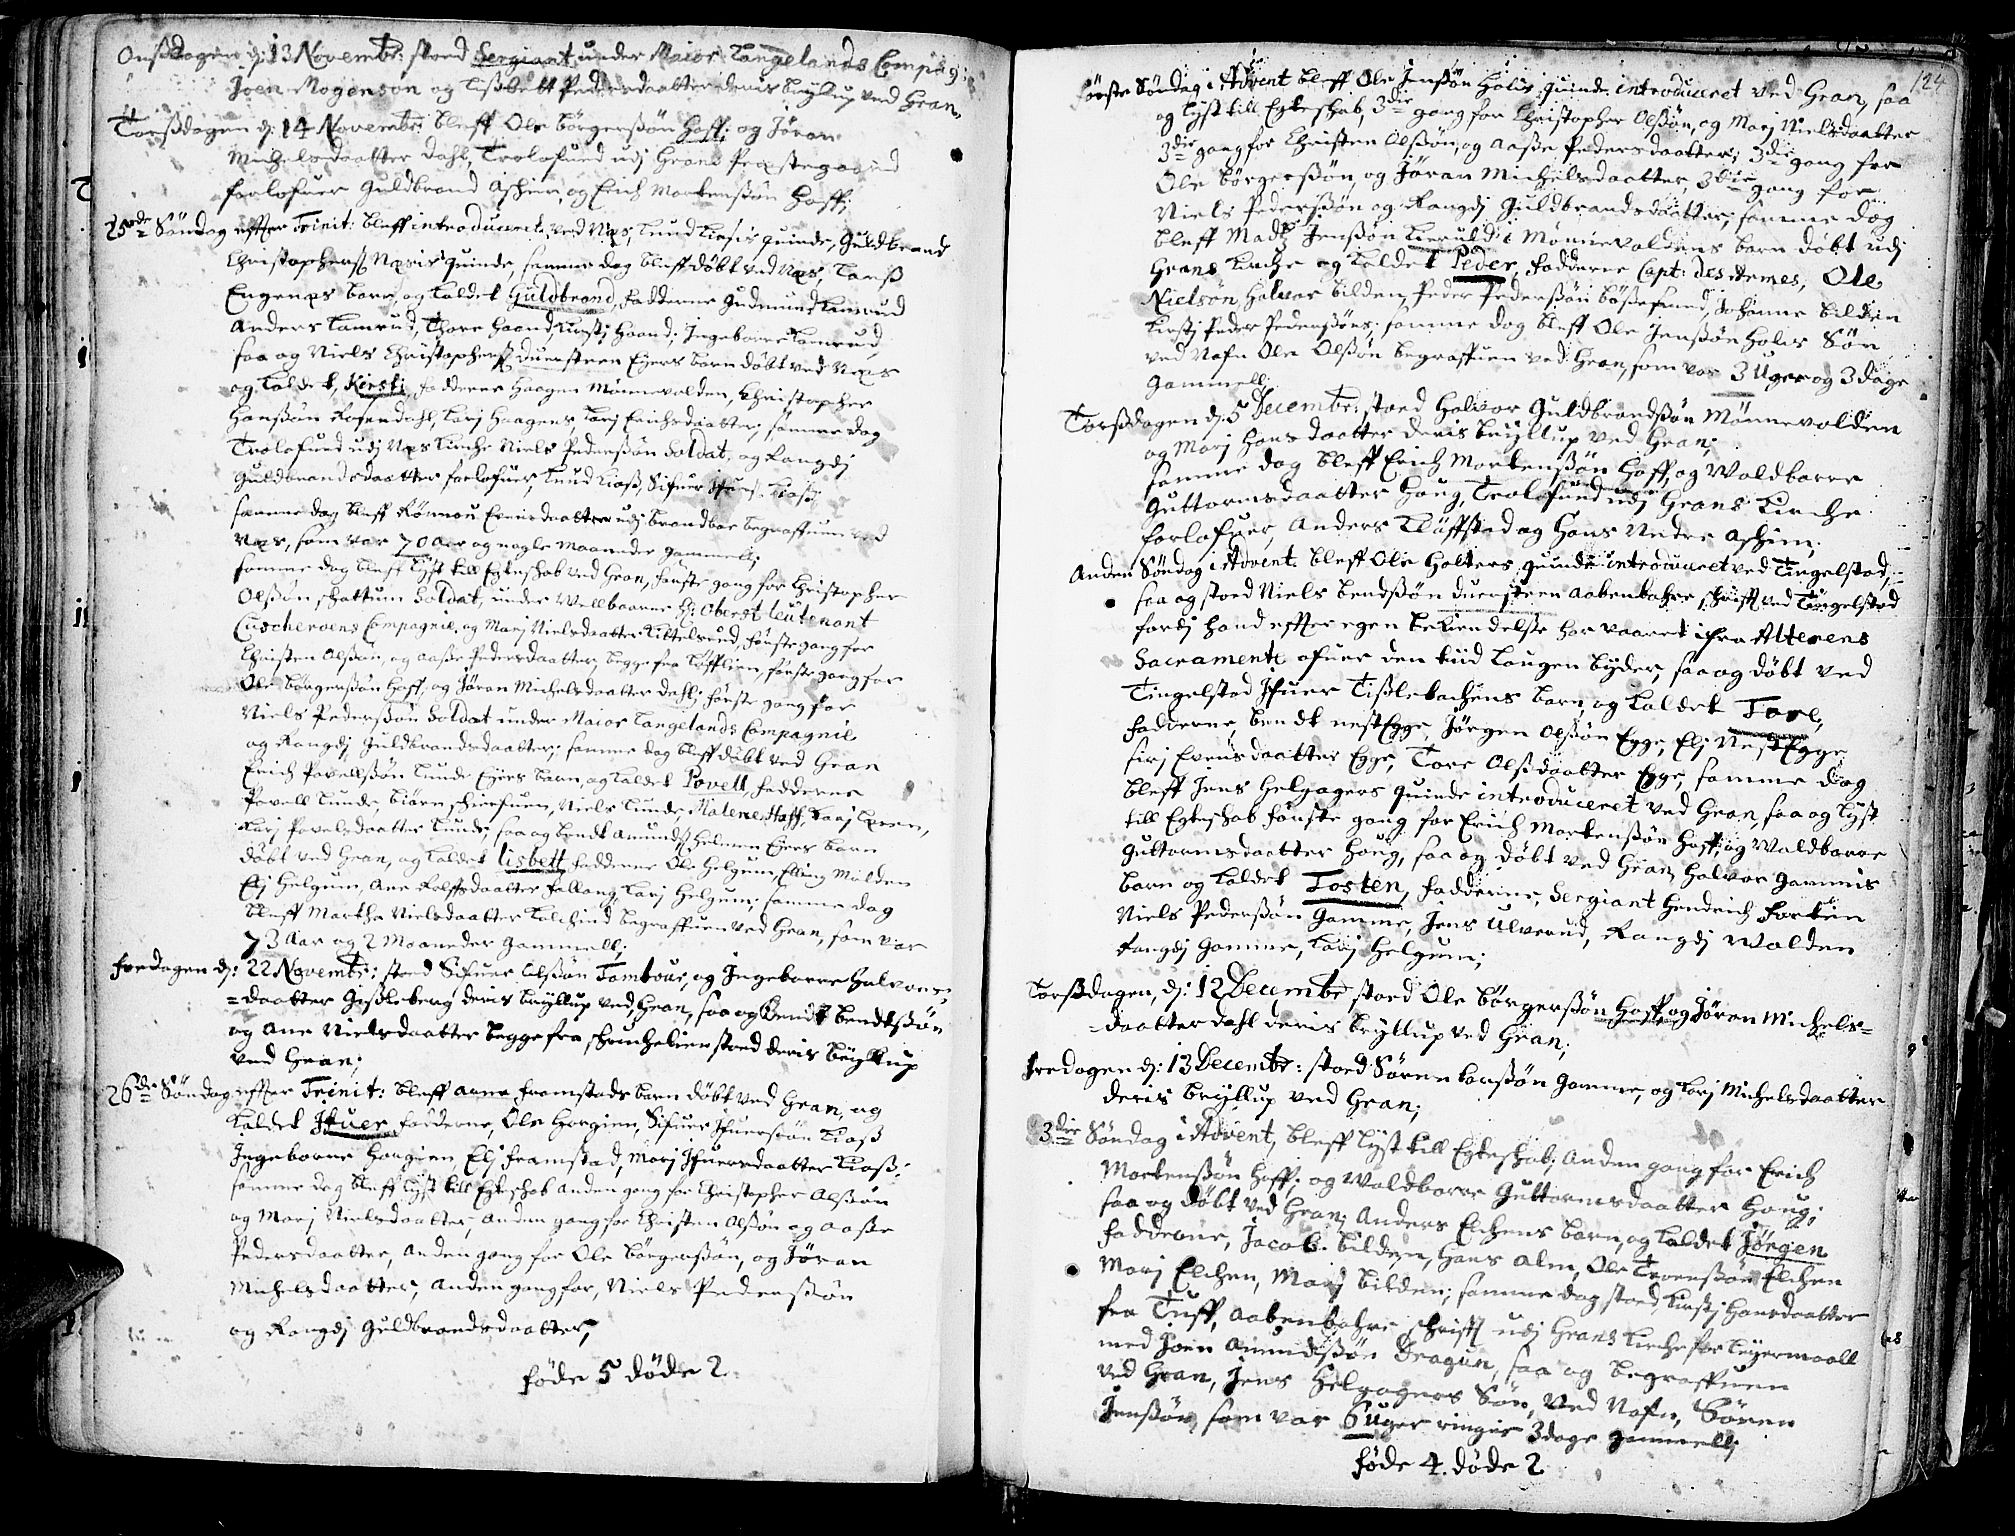 Onsßdagen d: 13 Novembr: stoed Sergiant under Maior Langelands Compag:
Joen Mogenson og Lißbett Pedersdaatter deris brÿllup ved Gran,
Torßdagen d: 14 Novembr: bleff Ole Börgerßön Hoff, og Jöran
Michelsdaatter Dahl, Trolofued udj Grans Præstegaard
forlofuer Guldbrand Aschim, og Erich Mortenßön Hoff;
25de Söndag effter Trinit: bleff introduceret ved Næs, Knud Kioßis quinde, Guldbrand
Christophersß Næsis quinde, samme dag bleff döbt ved Næs, Larß
Engenæs barn, og kaldet Guldbrand, fadderne Gudmund Lamrud
Anders Lamrud, Thore Haand, Kirstj Haand, Ingeborre Lamrud,
saa og Niels Christophersß duersteen Eÿers barn döbt ved Næs
og kaldet, Kirstj, fadderne Haagen Münnevolden, Christopher
Hansßön Rosendahl, Karj Haagens, Karj Erichsdaatter; samme dag
Trolofued udj Næs Kirche Niels Pederßön Soldat, og Rangdj
Guldbrandsdaatter forlofuer, Knud Kioß, Sifuer Ifuers: Kioß;
samme dag bleff Rönnou Evensdaatter udj Brandboe begraffuen ved
Næs, som var 70 Aar og nogle Maaneder gammell;
samme dag bleff lÿst till Egteschab ved Gran, förste gang for Christopher
Olßön schattum Soldat, under Wellbaarne H: Oberst leütenant
Cuscherons Compagnie, og Marj Nielsdaatter Kittelsrud, förste gang for
Christen Olßön, og Aaße Pedersdaatter, begge fra Löfflien, förste gang for
Ole Börgerßön Hoff, og Jöran Michelsdaatter dahl; förste gang for
Niels Pederßön Soldat under Maior Langelands Compagnie
og Rangdj Guldbrandsdaatter; samme dag bleff döbt ved Gran
Erich Povellßön Lunde Eÿers barn, og kaldet Povell, fadderne
Povell Lunde, Biörn schiefuen, Niels Lunde, Malene Hoff, Karj Loren,
Karj Povelsdaatter Lunde; saa og bendt Amundsß Helmen Eÿers barn
döbt ved Gran, og kaldet Lisbett, fadderne Ole Helgum, Elling Molden
Elj Helgum, Ane Rolffsdaatter fallang, Karj Helgum; samme dag
bleff Marthe Nielsdaatter Kelchind begraffuen ved Gran, som var
73 Aar og 2 Maaneder gammell;
Fredagen d: 22 Novembr: stoed Sifuer Olßön Tambour, og Ingeborre Halvors-
=daatter Gisleberg deris brÿllup ved Gran, saa og Bendt Bendtßön
og Ane Nielsdaatter begge fra schiuhelien stoed deris brÿllup
ved Gran;
26de Söndag effter Trinit: bleff Aane framstads barn döbt ved Gran, og
kaldet Ifuer, fadderne, Ole Horgien, Sifuer Ifuersøn Kioß
Ingeborre Horgien, Elj framstad, Marj Ifuersdaatter Kioß;
samme dag bleff lÿst till Egteschab anden gang for Christopher Olßön
og Marj Nielsdaatter, anden gang for Christen Olßön og Aaße
Pedersdaatter, anden gang for Ole Börgerßön, og Jöran
Michelsdaatter, anden gang for, Niels Pederßön
og Rangdj Guldbrandsdaatter;
Föde 5 döde 2.
124
Förste Söndag i Advent bleff Ole Jenßön Holis quinde introduceret ved Gran, saa
og lÿst till Egteschab, 3die gang for Christopher Olßön, og Marj Nielsdaatter
3die gang for Christen Olßön, og Aaße Pedersdaatter; 3die gang for
Ole Börgerßön, og Jöran Michelsdaatter, 3die gang for
Niels Pederßön og Rangdj Guldbrandsdaatter; samme dag
bleff Madtz Jenßön Lieruld i Mönnevoldens barn döbt udj
Grans Kirche og kaldet Peder, fadderne Capt: des Armes, Ole
Nielsön, Halvor bilden, Peder Pederßön Böße smed, Johanne bilden
Kirstj Peder Pederßöns; samme dag bleff Ole Jenßön Holis Sön
ved Nafn Ole Olßön begraffuen ved Gran, som var 3 Uger og 3 dage
gammell;
Torßdagen d: 5 Decembr: stoed Halvor Guldbrandßön Mönnevolden
og Marj Hansdaatter deris brÿllup ved Gran;
samme dag bleff Erich Mortenßön Hoff, og Woldborre
Guttormsdaatter Houg, Trolofued udj Grans Kirche
forlofuer, Anders Klöffstad og Hans Nedre Aschim;
Anden Söndag i Advent bleff Ole Holters quinde introduceret ved Tingelstad,
saa og stoed Niels Bendßön duersteen aabenbahre schrifft ved Tingelstad
fordj hand effter egen bekiendelse har været ifra Alterens
Sacramente ofuer den tiid Laugen bÿder, saa og döbt ved
Tingelstad Ifuer Tißlebachens barn, og kaldet Tore,
fadderne, bendt nest Egge, Jörgen Olßön Egge, Elj Nest Egge,
Sirj Evensdaatter Egge, Tore Olßdaatter Egge; samme dag
bleff Jens Helgagers quinde introduceret ved Gran, saa og lÿst
till Egteschab förste gang for Erich Mortenßön Hoff, og Woldborre
Guttormsdaatter Houg, saa og döbt ved Gran, Halvor Gammis
barn og kaldet Tosten, fadderne, Sergiant Hendrich Forten
Niels Pederßön Gamme, Jens Ulverud, Rangdj Wolden
Rangdj Gamme, Karj Helgum;
Torßdagen, d: 12 Decembr stoed Ole Börgerßön Hoff, og Jöran Michels=
=daatter Dahl deris brÿllup ved Gran;
Fredagen d: 13 Decembr: stoed Sören Larßön Gamme, og Karj Michelsdaatter
deris brÿllup ved Gran;
3die Söndag i Advent, bleff lÿst till Egteschab, anden gang for Erich
Mortenßön Hoff, og Woldborre Guttormsdaatter Houg;
saa og döbt ved Gran, Anders Elchens barn, og kaldet Jörgen
fadderne, Jacob bilden, Hans Alm, Ole Evenßön Elchen
Marj Elchen, Marj bilden; samme dag stoed Kirstj Hansdaatter
fra Tuff, aabenbahre schrifft udj Grans Kirche for Leÿermaall
med Joen Amundßön Dragun, saa og begraffuen
ved Gran, Jens Helgagers Sön, ved Nafn, Sören
Jenßön, som var 6 Uger ringer 3 dage gammell;
Föde 4. döde 2